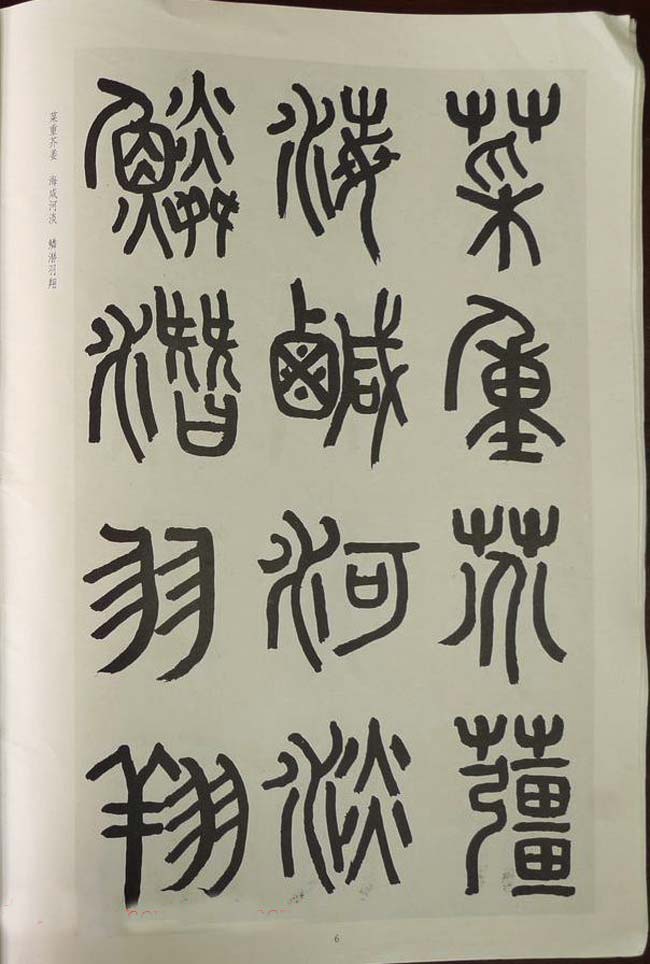 菜重芥薑
海鹹河淡
鱗潛羽翔
菜重芥姜　海咸河淡　鳞潜羽翔
6